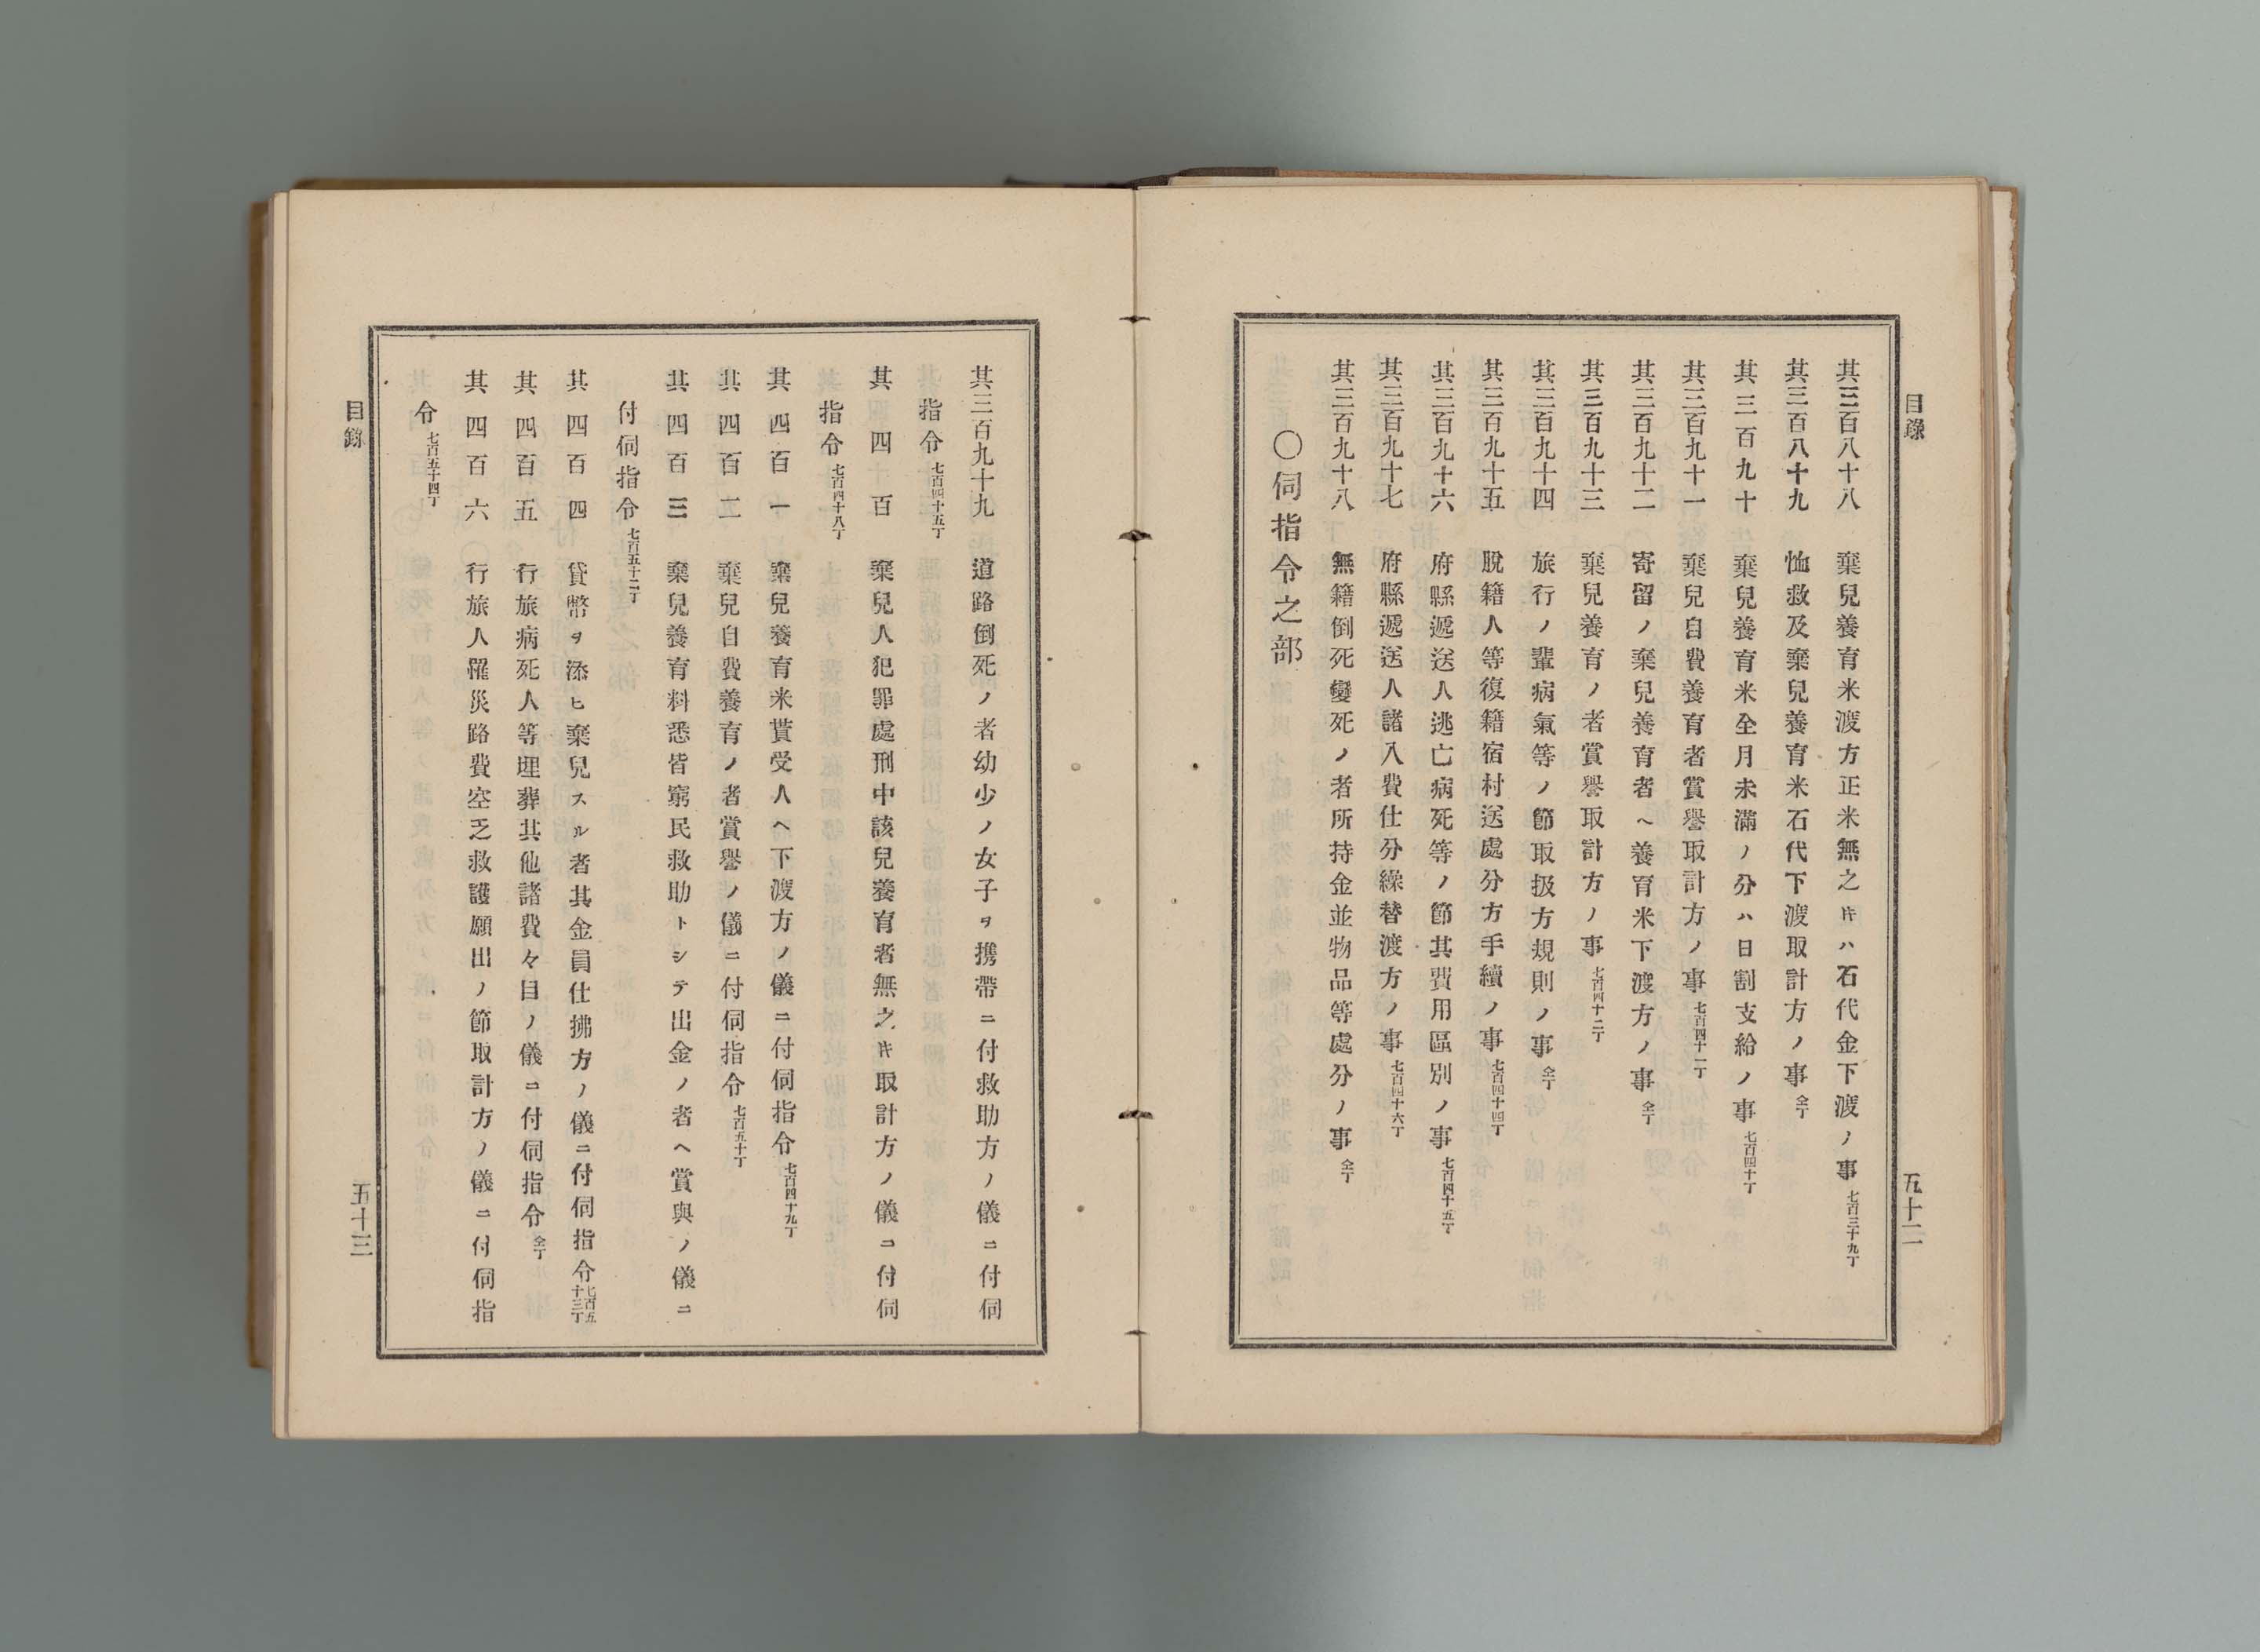 目錄
五十二
其三百八十八 棄兒養育米渡方正米無之𪜈ハ石代金下渡ノ事 七百三十九丁
其三百八十九 恤救及棄兒養育米石代下渡取計方ノ事 仝丁
其三百九十 棄兒養育米全月未滿ノ分ハ日割支給ノ事 七百四十丁
其三百九十一 棄兒自費養育者賞譽取計方ノ事 七百四十一丁
其三百九十二 寄留ノ棄兒養育者ヘ養育米下渡方ノ事 仝丁
其三百九十三 棄兒養育ノ者賞譽取計方ノ事 七百四十二丁
其三百九十四 旅行ノ輩病氣等ノ節取扱方規則ノ事 仝丁
其三百九十五 脫籍人等復籍宿村送處分方手續ノ事 七百四十四丁
其三百九十六 府縣遞送人逃亡病死等ノ節其費用區別ノ事 七百四十五丁
其三百九十七 府縣遞送人諸入費仕分繰替渡方ノ事 七百四十六丁
其三百九十八 無籍倒死變死ノ者所持金並物品等處分ノ事 仝丁
〇伺指令之部
其三百九十九 道路倒死ノ者幼少ノ女子ヲ携帶ニ付救助方ノ儀ニ付伺
指令 七百四十五丁
其四百 棄兒人犯罪處刑中該兒養育者無之𪜈取計方ノ儀ニ付伺
指令 七百四十八丁
其四百一 棄兒養育米貰受人ヘ下渡方ノ儀ニ付伺指令 七百四十九丁
其四百二 棄兒自費養育ノ者賞譽ノ儀ニ付伺指令 七百五十丁
其四百三 棄兒養育料悉皆窮民救助トシテ出金ノ者ヘ賞與ノ儀ニ
付伺指令 七百五十二丁
其四百四 貸幣ヲ添ヒ棄兒スル者其金員仕拂方ノ儀ニ付伺指令 七百五十三丁
其四百五 行旅病死人等埋葬其他諸費々目ノ儀ニ付伺指令 仝丁
其四百六 行旅人罹災路費空乏救護願出ノ節取計方ノ儀ニ付伺指
令 七百五十四丁
目錄
五十三